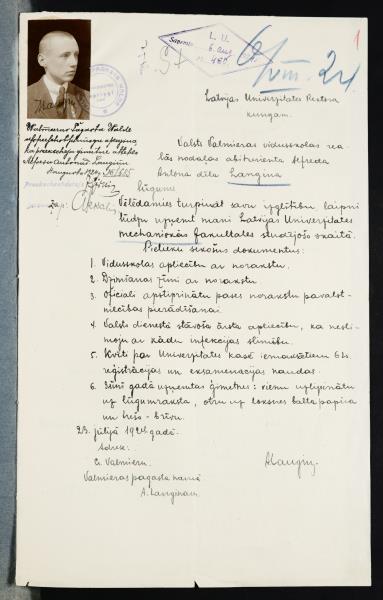 1
Saņemts L. U.
6. aug.
Latvijas Universitātes Rektora
kungam.
Valsts Valmieras vidusskolas rea-
lās nodaļas abiturienta Alfreda
Antona dēla Langiņa
lūgums
Vēlēdamies turpināt savu izglītību, laipni
lūdzu uzņemt mani Latvijas Universitātes
mechanikas fakultates studējošo skaitā.
Pielieku sekošus dokumentus:
1. Vidusskolas apliecību ar norakstu.
2. Dzimšanas zīmi ar norakstu.
3. Oficiali apstiprinātu pases norakstu pavalst-
niecības pierādīšanai.
4. Valsts dienestā stāvoša ārsta apliecību, ka nesli-
moju ar kādu infekcijas slimību.
5. Kvīti par Universitates kasē iemaksātiem 6 ls.
reģistrācijas un eksamenacijas naudas.
6. Šinī gadā uzņemtas ģimetnes: vienu uzlīpinātu
uz lūgumraksta, otru uz loksnes balta papira
un trešo - brīvu.
23. jūlijā 1924 gadā.
Adrese:
Valmierā.
Valmieras pagasta namā
A. Langiņam.
ALangiņ